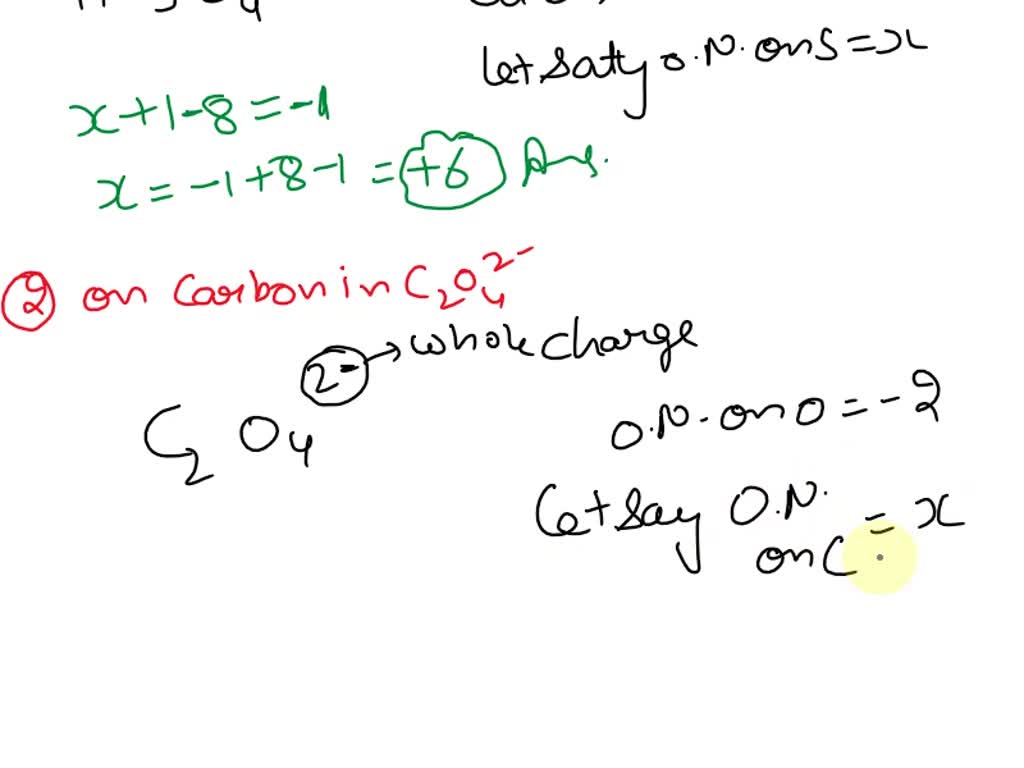 let saty O.N. on S = x
x + 1 - 8 = -1
x = -1 + 8 - 1 = +6 Ans.
2 on Carbon in C₂O₄²⁻
2- → whole charge
C₂ O₄
O.N. on O = -2
Let say O.N. = x
on C